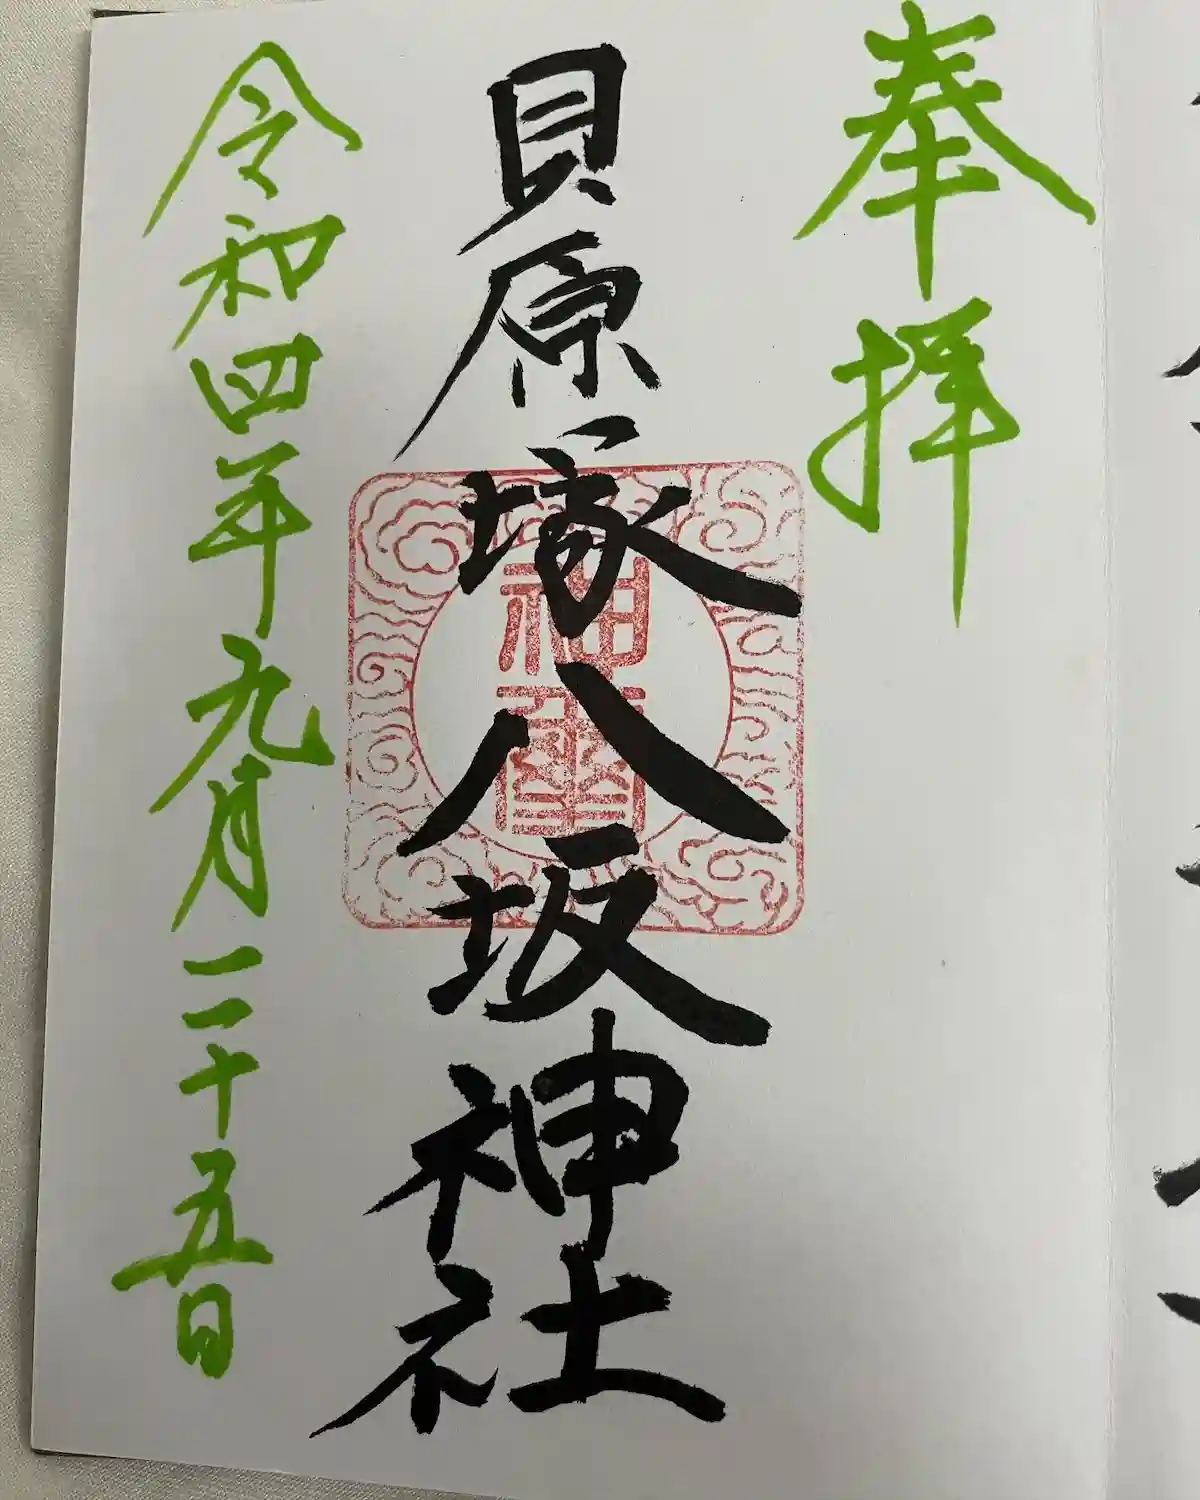 奉拝
貝原塚八坂神社
神璽
令和四年九月二十五日